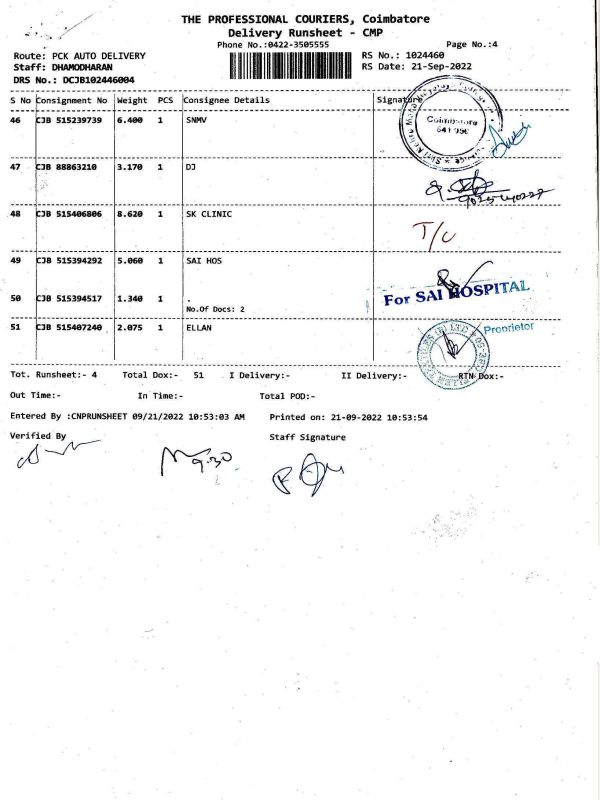 THE PROFESSIONAL COURIERS, Coimbatore
Delivery Runsheet - CMP
Phone No.:0422-3505555 Page No.:4
Route: PCK AUTO DELIVERY RS No.: 1024460
Staff: DHAMODHARAN RS Date: 21-Sep-2022
DRS No.: DCJB102446004
S No Consignment No Weight PCS Consignee Details Signature
46 CJB 515239739 6.400 1 SNMV
Coimbatore
641 050
47 CJB 88863210 3.170 1 DJ
48 CJB 515406806 8.620 1 SK CLINIC
T/C
49 CJB 515394292 5.060 1 SAI HOS
For SAI HOSPITAL
50 CJB 515394517 1.340 1 .
No.Of Docs: 2
Proprietor
51 CJB 515407240 2.075 1 ELLAN
Tot. Runsheet:- 4 Total Dox:- 51 I Delivery:- II Delivery:- RTN Dox:-
Out Time:- In Time:- Total POD:-
Entered By :CNPRUNSHEET 09/21/2022 10:53:03 AM Printed on: 21-09-2022 10:53:54
Verified By Staff Signature
9.30